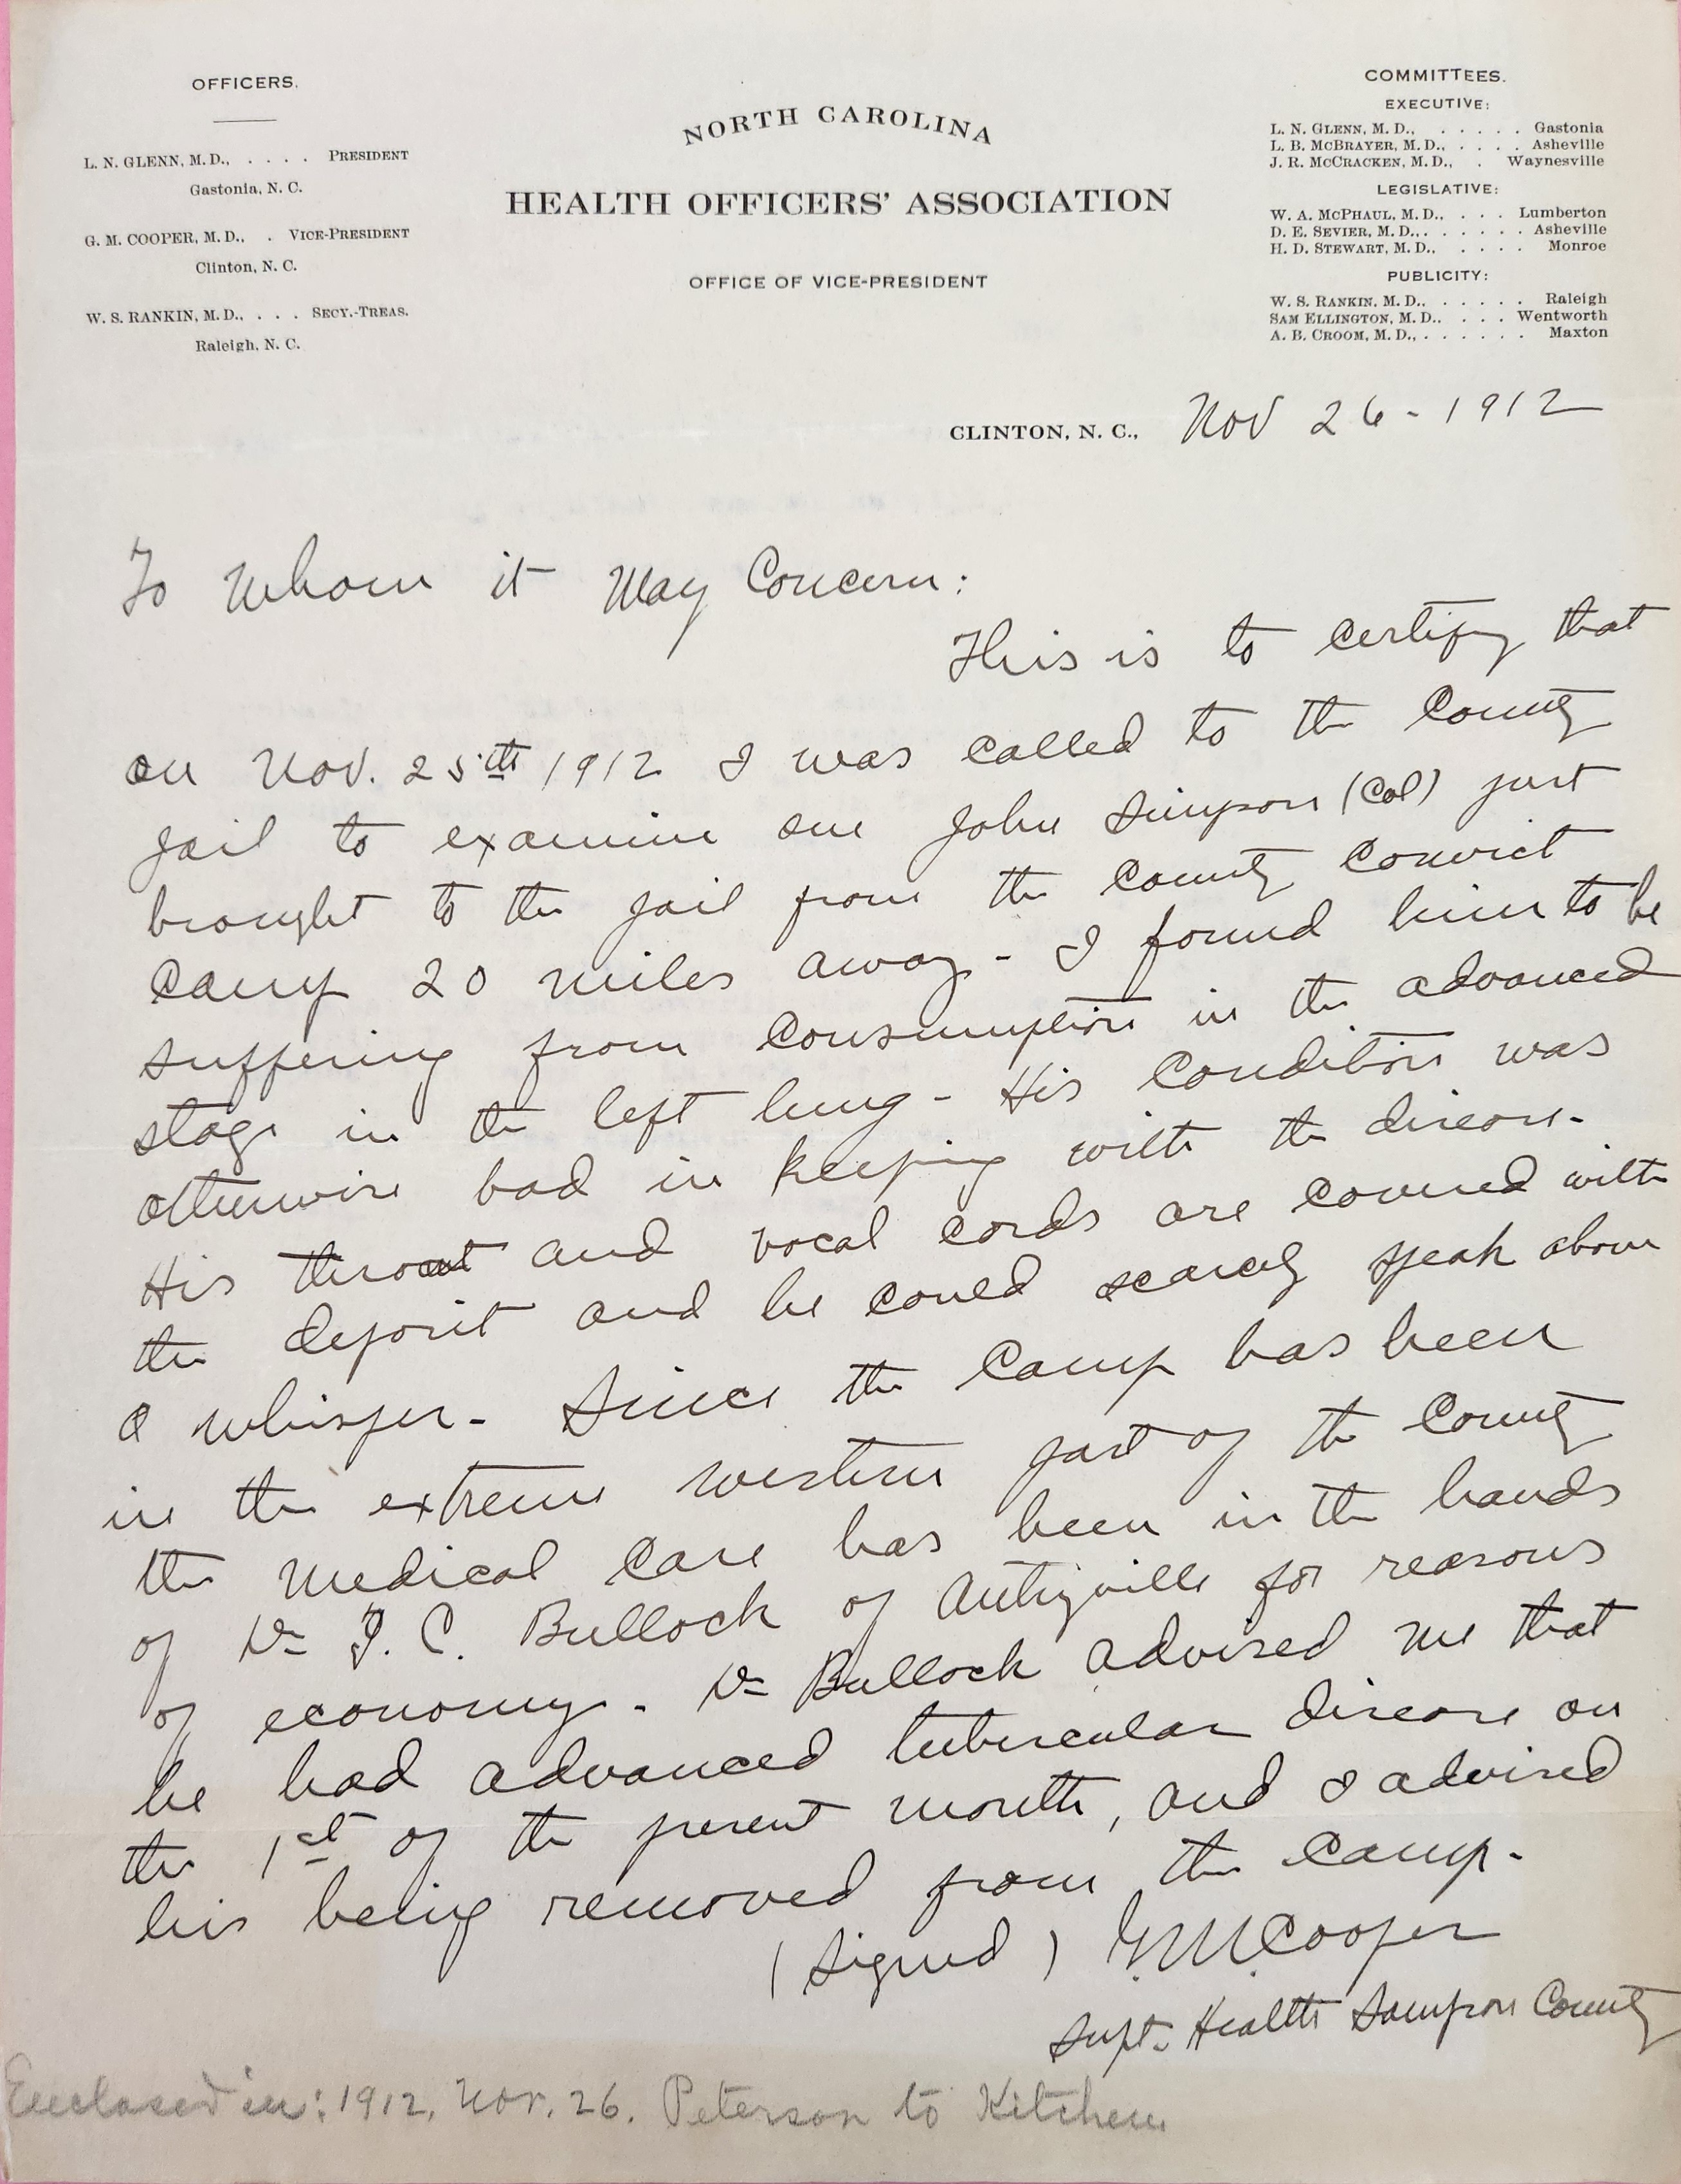 OFFICERS.
L. N. GLENN, M. D., . . . . PRESIDENT
Gastonia, N. C.
G. M. COOPER, M. D., . VICE-PRESIDENT
Clinton, N. C.
W. S. RANKIN, M. D., . . . SECY.-TREAS.
Raleigh, N. C.
NORTH CAROLINA
HEALTH OFFICERS' ASSOCIATION
OFFICE OF VICE-PRESIDENT
COMMITTEES.
EXECUTIVE:
L. N. GLENN, M. D., . . . . . Gastonia
L. B. MCBRAYER, M. D., . . . . Asheville
J. R. MCCRACKEN, M. D., . Waynesville
LEGISLATIVE:
W. A. MCPHAUL, M. D., . . . Lumberton
D. E. SEVIER, M. D., . . . . . . Asheville
H. D. STEWART, M. D., . . . . Monroe
PUBLICITY:
W. S. RANKIN, M. D., . . . . . Raleigh
SAM ELLINGTON, M. D., . . . Wentworth
A. B. CROOM, M. D., . . . . . . Maxton
CLINTON, N. C., Nov 26 - 1912
To Whom it May Concern:
This is to certify that
on Nov. 25th 1912 I was called to the County
jail to examine one John Simpson (Col) just
brought to the jail from the County Convict
Camp 20 miles away - I found him to be
suffering from Consumption in the advanced
stage in the left lung - His Condition was
otherwise bad in keeping with the disease -
His throat and vocal cords are covered with
the deposit and he could scarcely speak above
a whisper - Since the Camp has been
in the extreme western part of the County
the Medical Care has been in the hands
of Dr T. C. Bullock of Autryville for reasons
of economy - Dr Bullock advised me that
he had advanced tubercular disease on
the 1st of the present month, and I advised
his being removed from the Camp -
(Signed) G. M. Cooper
Supt. Health Sampson County
Enclosed in: 1912, Nov. 26. Peterson to Kitchin